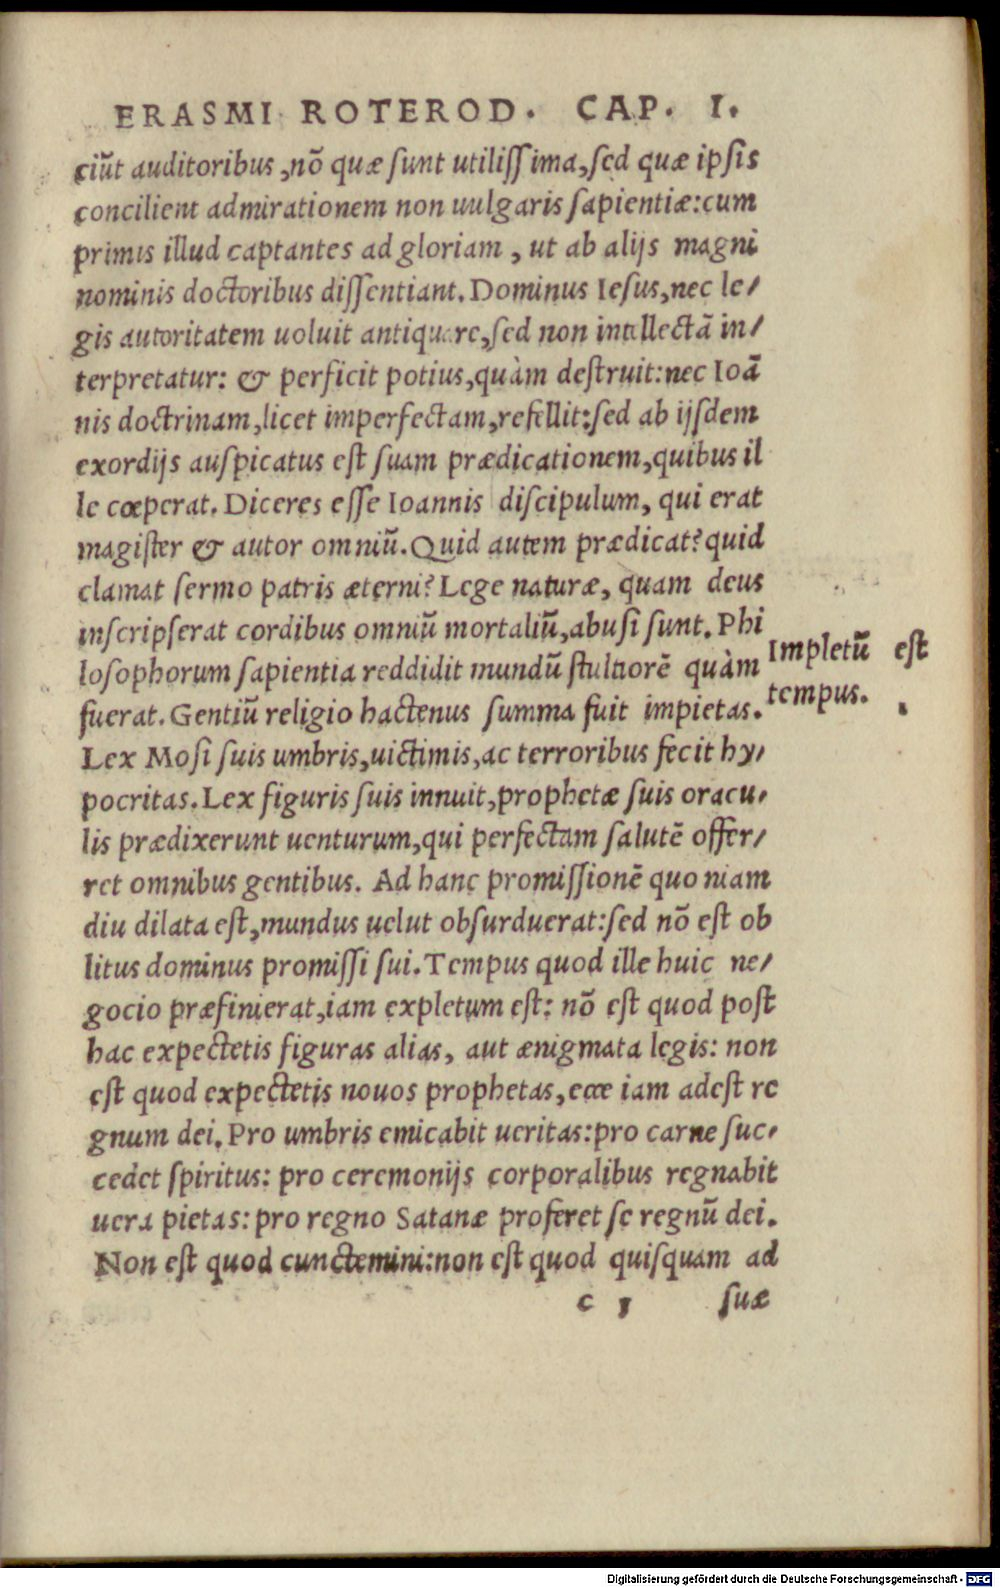 ERASMI ROTEROD. CAP. I.
ciũt auditoribus, nõ quæ sunt utilissima, sed quæ ipsis
concilient admirationem non uulgaris sapientiæ: cum
primis illud captantes ad gloriam, ut ab alijs magni
nominis doctoribus dissentiant. Dominus Iesus, nec le/
gis autoritatem uoluit antiquare, sed non intellectã in/
terpretatur: & perficit potius, quàm destruit: nec Ioã
nis doctrinam, licet imperfectam, refellit: sed ab ijsdem
exordijs auspicatus est suam prædicationem, quibus il
le cœperat. Diceres esse Ioannis discipulum, qui erat
magister & autor omniũ. Quid autem prædicat? quid
clamat sermo patris æterni? Lege naturæ, quam deus
inscripserat cordibus omniũ mortaliũ, abusi sunt. Phi
losophorum sapientia reddidit mundũ stultiorẽ quàm
fuerat. Gentiũ religio hactenus summa fuit impietas.
Impletũ est
tempus.
Lex Mosi suis umbris, uictimis, ac terroribus fecit hy/
pocritas. Lex figuris suis innuit, prophetæ suis oracu/
lis prædixerunt uenturum, qui perfectam salutẽ offer/
ret omnibus gentibus. Ad hanc promissionẽ quoniam
diu dilata est, mundus uelut obsurduerat: sed nõ est ob
litus dominus promissi sui. Tempus quod ille huic ne/
gocio præfinierat, iam expletum est: nõ est quod post
hac expectetis figuras alias, aut ænigmata legis: non
est quod expectetis nouos prophetas, ecce iam adest re
gnum dei. Pro umbris emicabit ueritas: pro carne suc/
cedet spiritus: pro ceremonijs corporalibus regnabit
uera pietas: pro regno Satanæ proferet se regnũ dei.
Non est quod cunctemini: non est quod quisquam ad
c 1 suæ
Digitalisierung gefördert durch die Deutsche Forschungsgemeinschaft - DFG